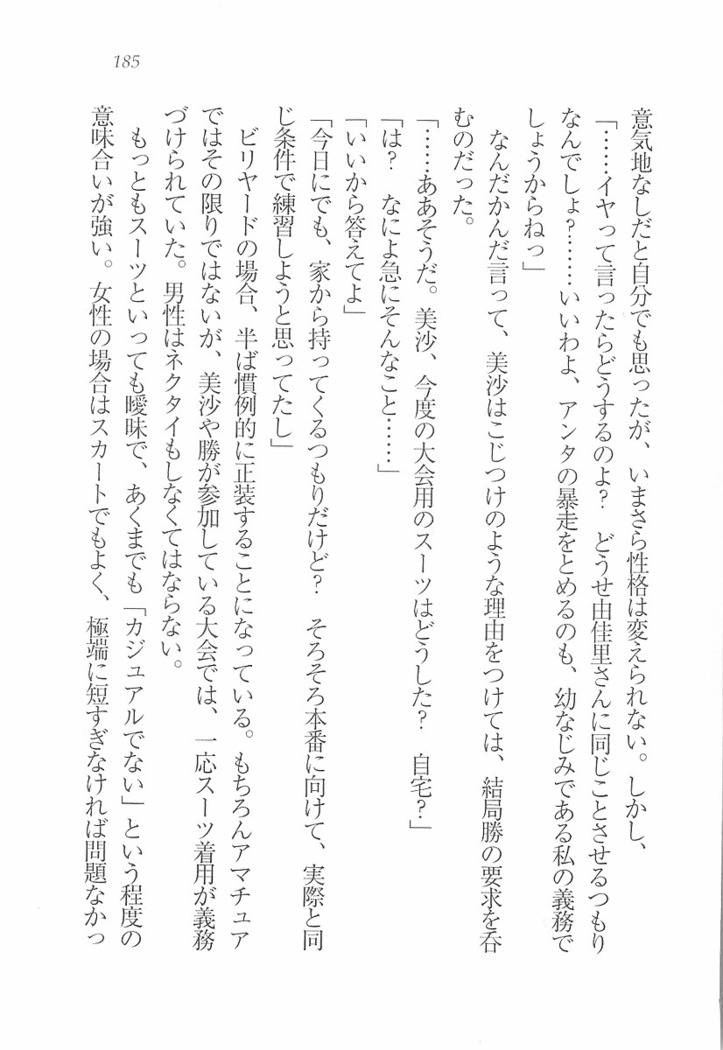 185
意気地なしだと自分でも思ったが、いまさら性格は変えられない。しかし、
「……イヤって言ったらどうするのよ？　どうせ由佳里さんに同じことさせるつもり
なんでしょ？……いいわよ、アンタの暴走をとめるのも、幼なじみである私の義務で
しょうからねっ」
　なんだかんだ言って、美沙はこじつけのような理由をつけては、結局勝の要求を呑
むのだった。
「……ああそうだ。美沙、今度の大会用のスーツはどうした？　自宅？」
「は？　なによ急にそんなこと……」
「いいから答えてよ」
「今日にでも、家から持ってくるつもりだけど？　そろそろ本番に向けて、実際と同
じ条件で練習しようと思ってたし」
　ビリヤードの場合、半ば慣例的に正装することになっている。もちろんアマチュア
ではその限りではないが、美沙や勝が参加している大会では、一応スーツ着用が義務
づけられていた。男性はネクタイもしなくてはならない。
　もっともスーツといっても曖昧で、あくまでも「カジュアルでない」という程度の
意味合いが強い。女性の場合はスカートでもよく、極端に短すぎなければ問題なかっ